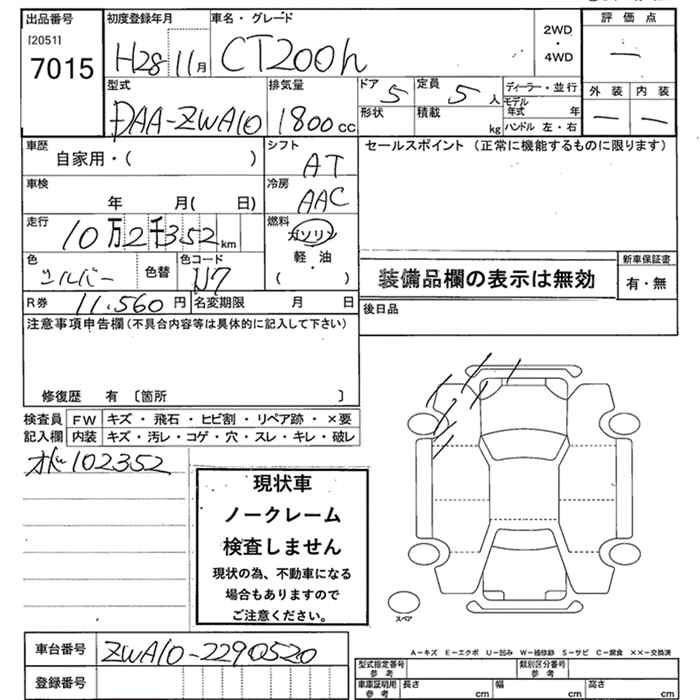 出品番号 初度登録年月 車名・グレード 2WD・4WD 評価点
[2051]
7015 H28 11月 CT200h —
型式 排気量 ドア 5 定員 5人 ディーラー・並行 外装 内装
DAA-ZWA10 1800cc 形状 積載 kg モデル年式 年 — —
ハンドル 左・右
車歴 自家用・( ) シフト AT セールスポイント (正常に機能するものに限ります)
車検 年 月( 日) 冷房 AAC
走行 10万2千352km 燃料 ガソリン・軽油・( )
色 シルバー 色替 色コード U7 装備品欄の表示は無効 新車保証書 有・無
R券 11,560円 名変期限 月 日 後日品
注意事項申告欄 (不具合内容等は具体的に記入して下さい)
修復歴 有 〔箇所 〕
検査員記入欄 FW キズ・飛石・ヒビ割・リペア跡・×要
内装 キズ・汚レ・コゲ・穴・スレ・キレ・破レ
オド102352
現状車
ノークレーム
検査しません
現状の為、不動車になる
場合もありますので
ご注意ください。
スペア
車台番号 ZWA10-2290520
登録番号
A-キズ E-エクボ U-凹み W-補修跡 S-サビ C-腐食 ××-交換済
型式指定番号 参考 類別区分番号 参考
車庫証明用 参考 長さ cm 幅 cm 高さ cm